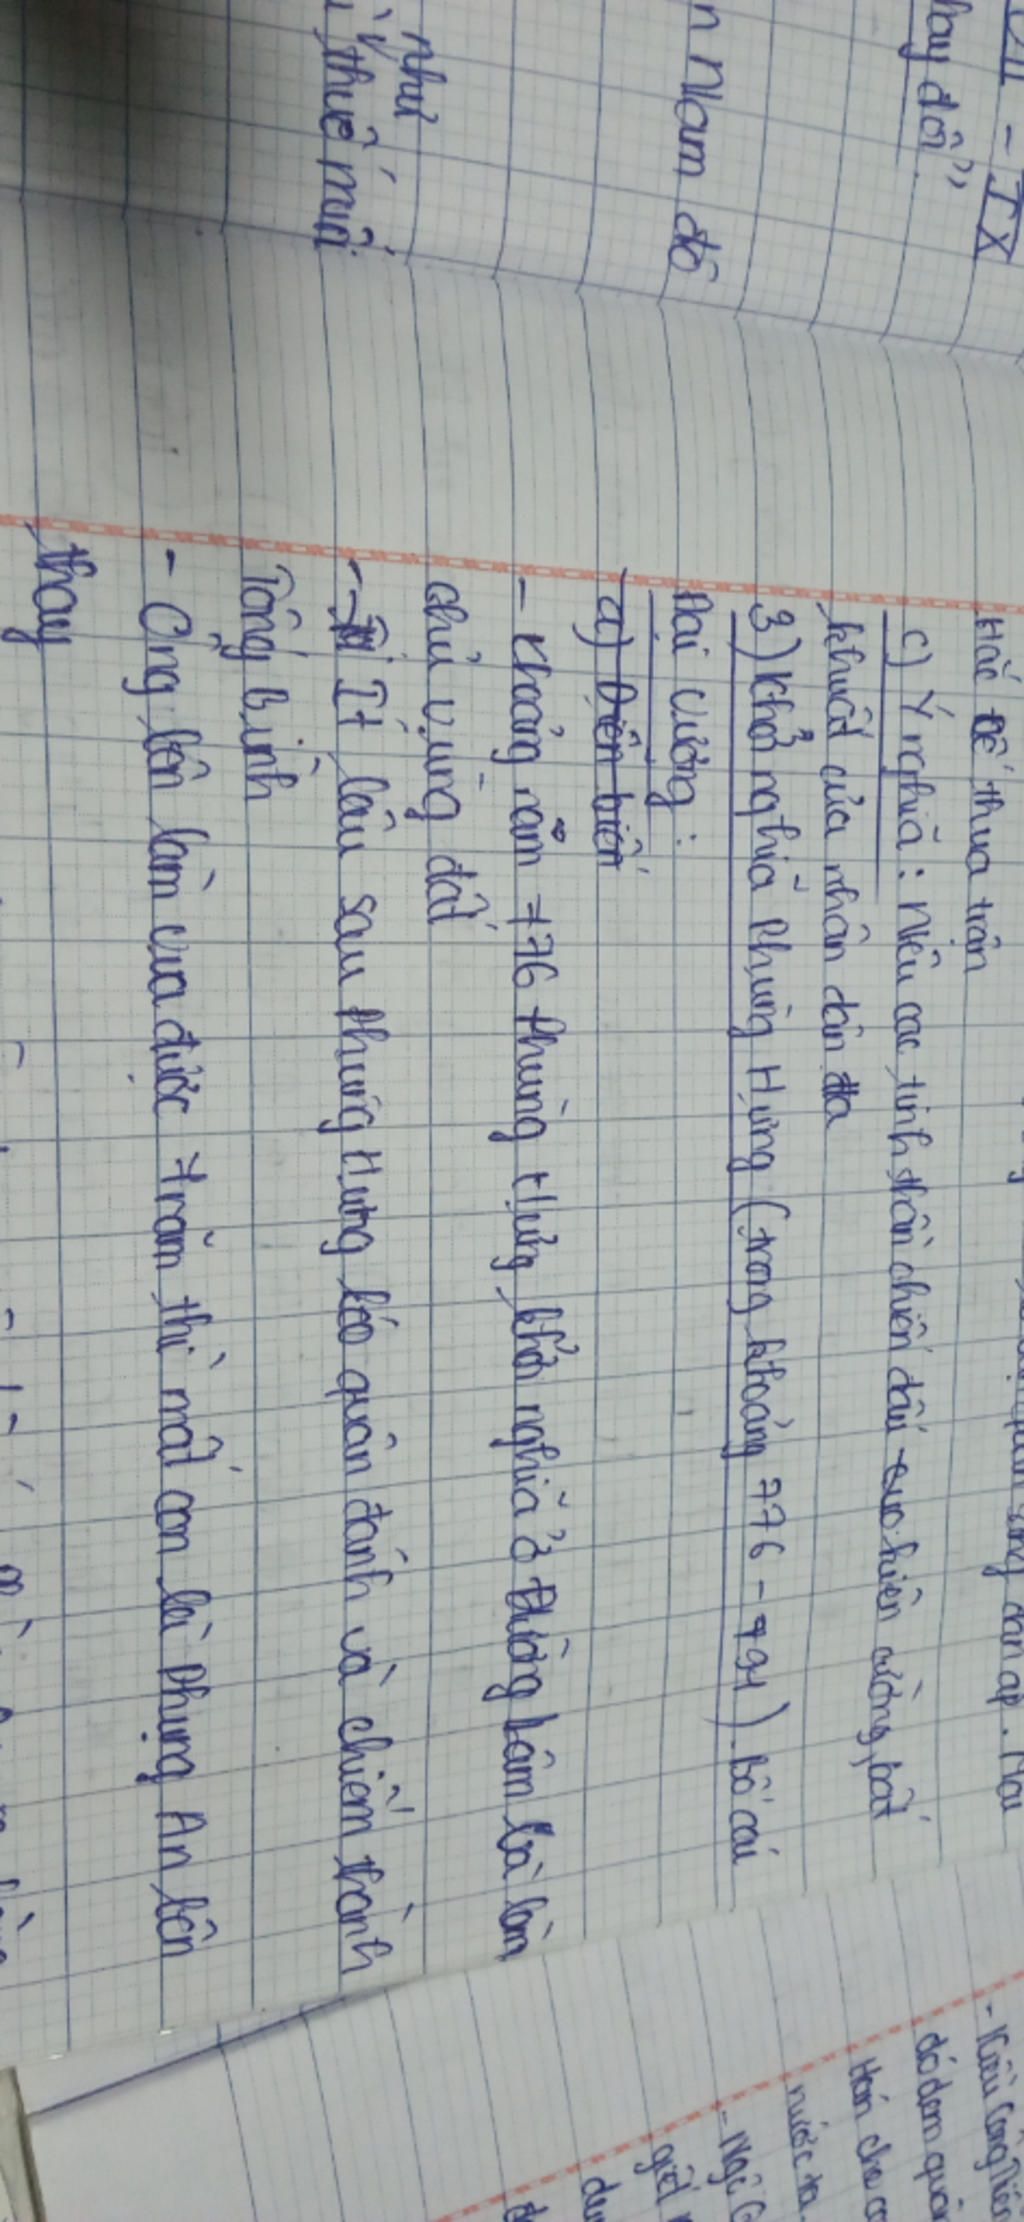 VII - IX
hay đổi"
n Nam đô
như
thuế muối
Hắc Đế thua trận
c) Ý nghĩa : Nêu cac tinh thần chiến đấu kiên cường, bất
khuất của nhân dân ta
3) Khở nghĩa Phùng Hưng (trong khoảng 776 - 791) Bố cái
Đại vương :
a) Diễn biến
- Khoảng năm 776 Phùng Hưng khởi nghĩa ở Đường Lâm là làm
chủ vùng đất
- Ít lâu sau Phùng Hưng kéo quân đánh và chiếm thành
Tống Bình
- Ông lên làm vua được trăm thì mất con là Phùng An lên
thay
- Kiều Công Tiễn
đó đem quân
Hán cho
nước ta.
- Ngô
giết